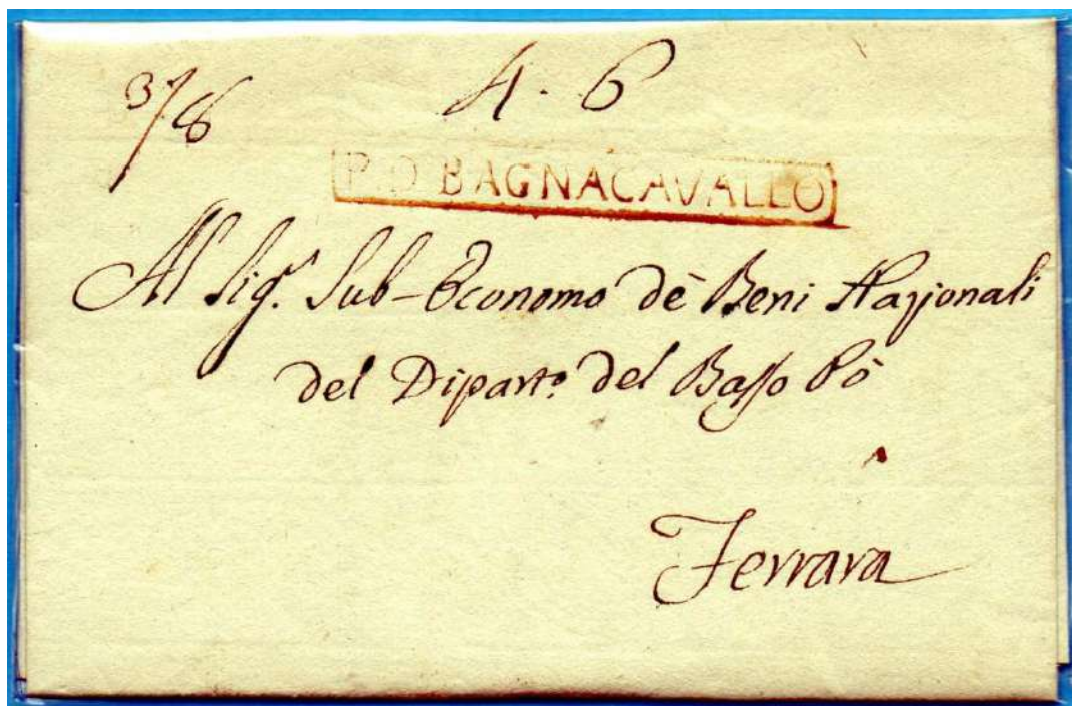 3/8
4.6
P.D BAGNACAVALLO
Al Sig.r Sub-Economo dè Beni Nazionali
del Dipart.o del Basso Pò
Ferrara